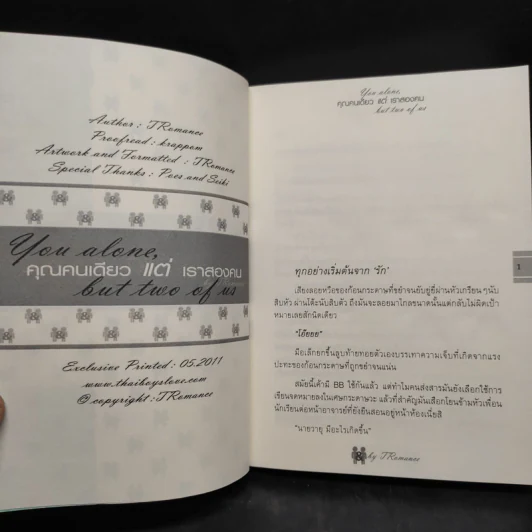 Author : TRomance
Proofread : krappom
Artwork and Formatted : TRomance
Special Thanks : Poes and Seiki
You alone,
คุณคนเดียว แต่ เราสองคน
but two of us
Exclusive Printed : 05.2011
www.thaiboyslove.com
@ copyright : TRomance
You alone,
คุณคนเดียว แต่ เราสองคน
but two of us
1
ทุกอย่างเริ่มต้นจาก 'รัก'
เสียงลอยหวือของก้อนกระดาษที่ขยำจนยับยู่ยี่ผ่านหัวเกรียนๆ นับ
สิบหัว ผ่านโต๊ะนับสิบตัว ถึงมันจะลอยมาไกลขนาดนั้นแต่กลับไม่ผิดเป้า
หมายเลยสักนิดเดียว
"โอ๊ยยย"
มือเล็กยกขึ้นลูบท้ายทอยตัวเองบรรเทาความเจ็บที่เกิดจากแรง
ปะทะของก้อนกระดาษที่ถูกขยำจนแน่น
สมัยนี้เค้ามี BB ใช้กันแล้ว แต่ทำไมคนส่งสารมันยังเลือกใช้การ
เขียนจดหมายลงในเศษกระดาษวะ แล้วที่สำคัญมันเลือกโยนข้ามหัวเพื่อน
นักเรียนต่อหน้าอาจารย์ที่ยังยืนสอนอยู่หน้าห้องเนี่ยสิ
"นายวายุ มีอะไรเกิดขึ้น"
by TRomance